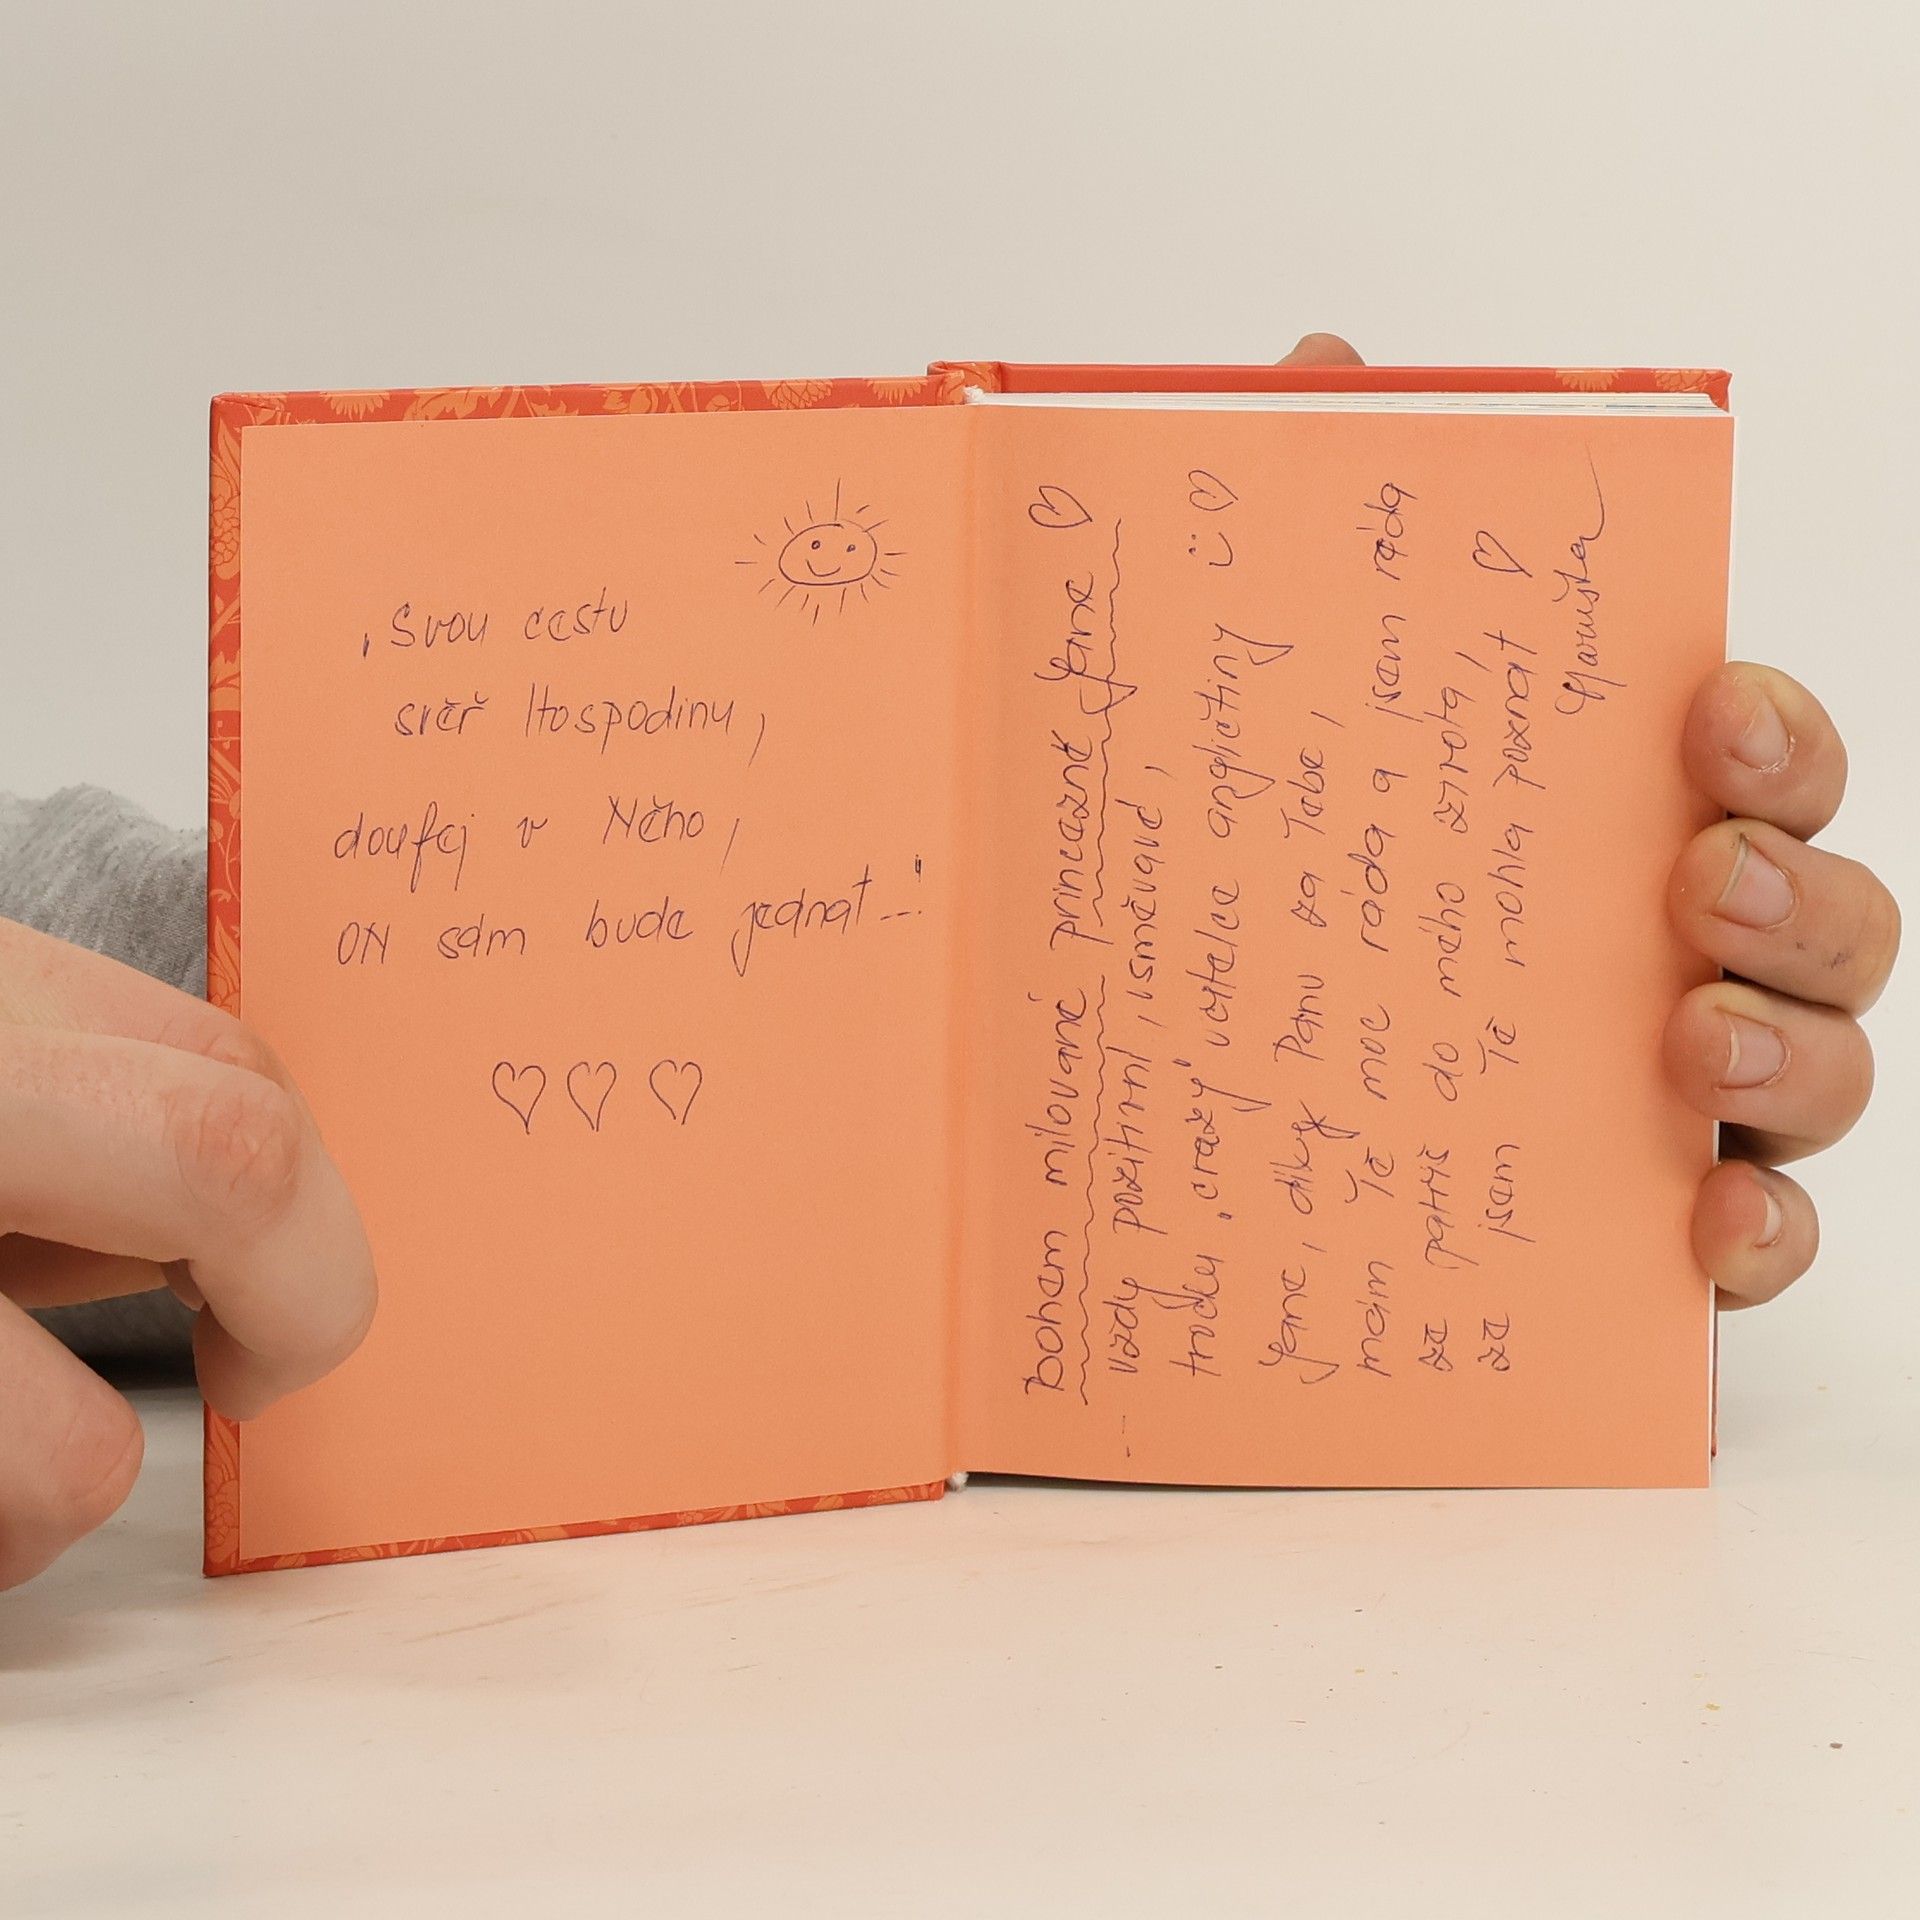 „Svou cestu
svěř Hospodinu,
doufej v Něho,
ON sám bude jednat...“
Bohem milované princezně Jane
... vždy pozitivní, usměvavé,
trošku „crazy“ učitelce angličtiny :)
Jane, díky Pánu za Tebe,
mám Tě moc ráda a jsem ráda
že patříš do mého života,
že jsem Tě mohla poznat
Maruška